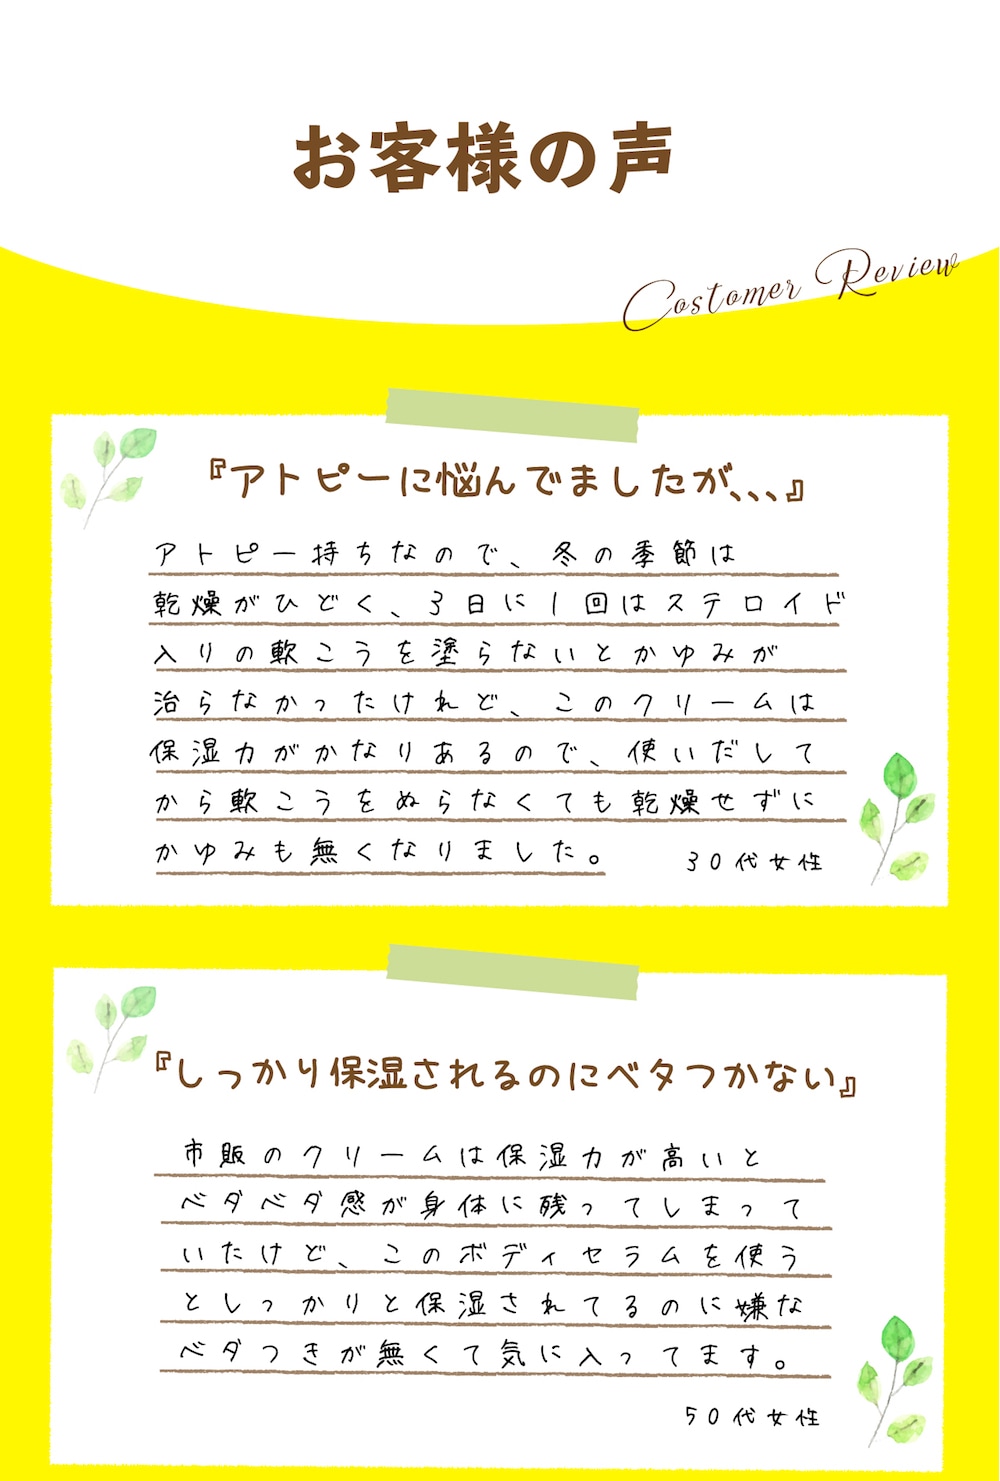 お客様の声
Costomer Review
『アトピーに悩んでましたが、、、』
アトピー持ちなので、冬の季節は
乾燥がひどく、3日に1回はステロイド
入りの軟こうを塗らないとかゆみが
治らなかったけれど、このクリームは
保湿力がかなりあるので、使いだして
から軟こうをぬらなくても乾燥せずに
かゆみも無くなりました。
30代女性
『しっかり保湿されるのにベタつかない』
市販のクリームは保湿力が高いと
ベダベダ感が身体に残ってしまって
いたけど、このボディセラムを使う
としっかりと保湿されてるのに嫌な
ベダつきが無くて気に入ってます。
50代女性